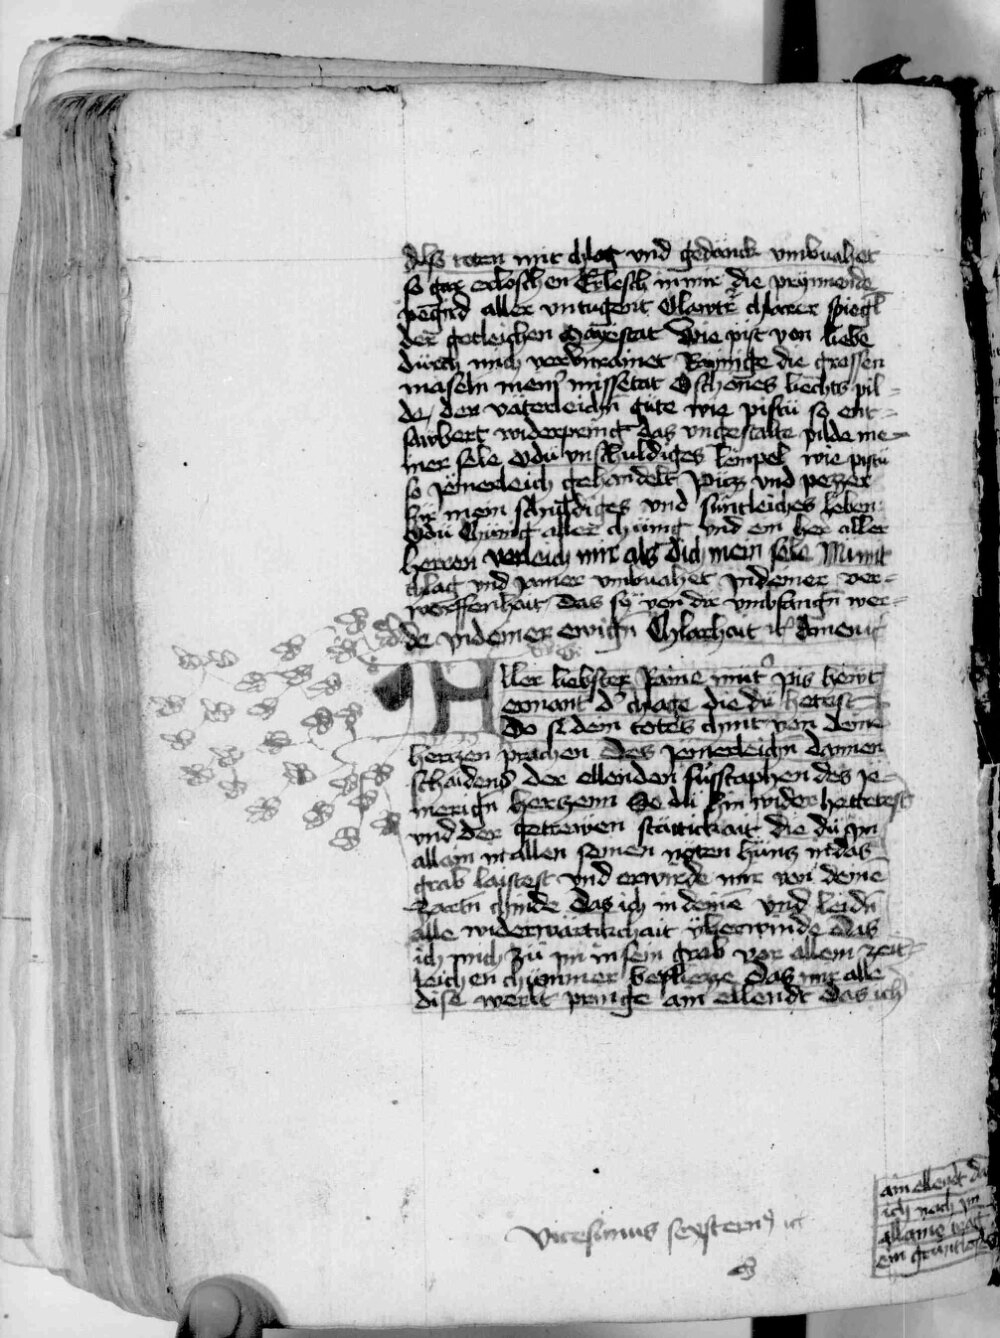 des toten mit chlag vnd gedänck vmbuahet
so gar erloschen Erlesch in mir die prynnende
pegird aller vntugent O lawtr chlarer spiegl
der gotleichen Mayestat wie pist von liebe
durch mich verunrainet Rainige die grossen
maseln meins missetat O schones liechts pil-
de der väterleichn güte wie pistu so ent-
färbert widerpring das vngestalte pilde me-
iner sele O du vnschuldiges lempel wie pistu
so jemerleich gehandelt Püzz vnd pezzer
für mein schuldiges vnd süntleiches leben
O du Chünig aller chünig vnd ein her aller
herren verleich mir als dich mein sele Nu mit
chlag vnd jamer vmbuahet in deiner ver-
worffenhait das sy von dir vmbfangn wer-
de in deiner ewign Chlarhait Amen
Aller liebster Raine mutr pis hewt
ermant dr chlage die du hetest
Do si dein totes chint von deine
hertzen prachen Des jemerleichn dannen
schaidens der ellenden fusstaphen des je-
merign hertzenn So du hin wider hettest
vnd der getrewen stättickait die du im
allain in allen seinen noten hüntz in das
grab laistest vnd erwirbe mir von deine
zartn chinde Das ich in deine vnd leidn
alle widerwärtikchait vberwinde Das
ich mich zu im in sein grab vor allem zeit-
leichen chummer besliezze Das mir alle
dise werlt pringe ain ellendt das ich
ain ellendt da
ich nach im
allaine
ein gruntloses
vicesimus sexsternus